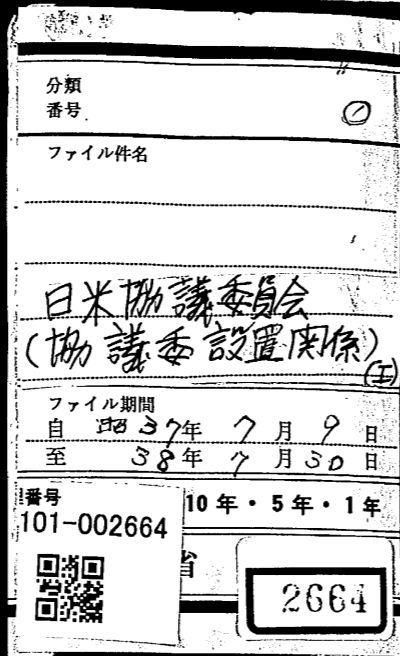 分類
番号
①
ファイル件名
日米協議委員会
(協議委設置関係)
ファイル期間
自 昭37年 7月 9日
至 38年 7月 30日
番号
101-002664
10年・5年・1年
省
2664